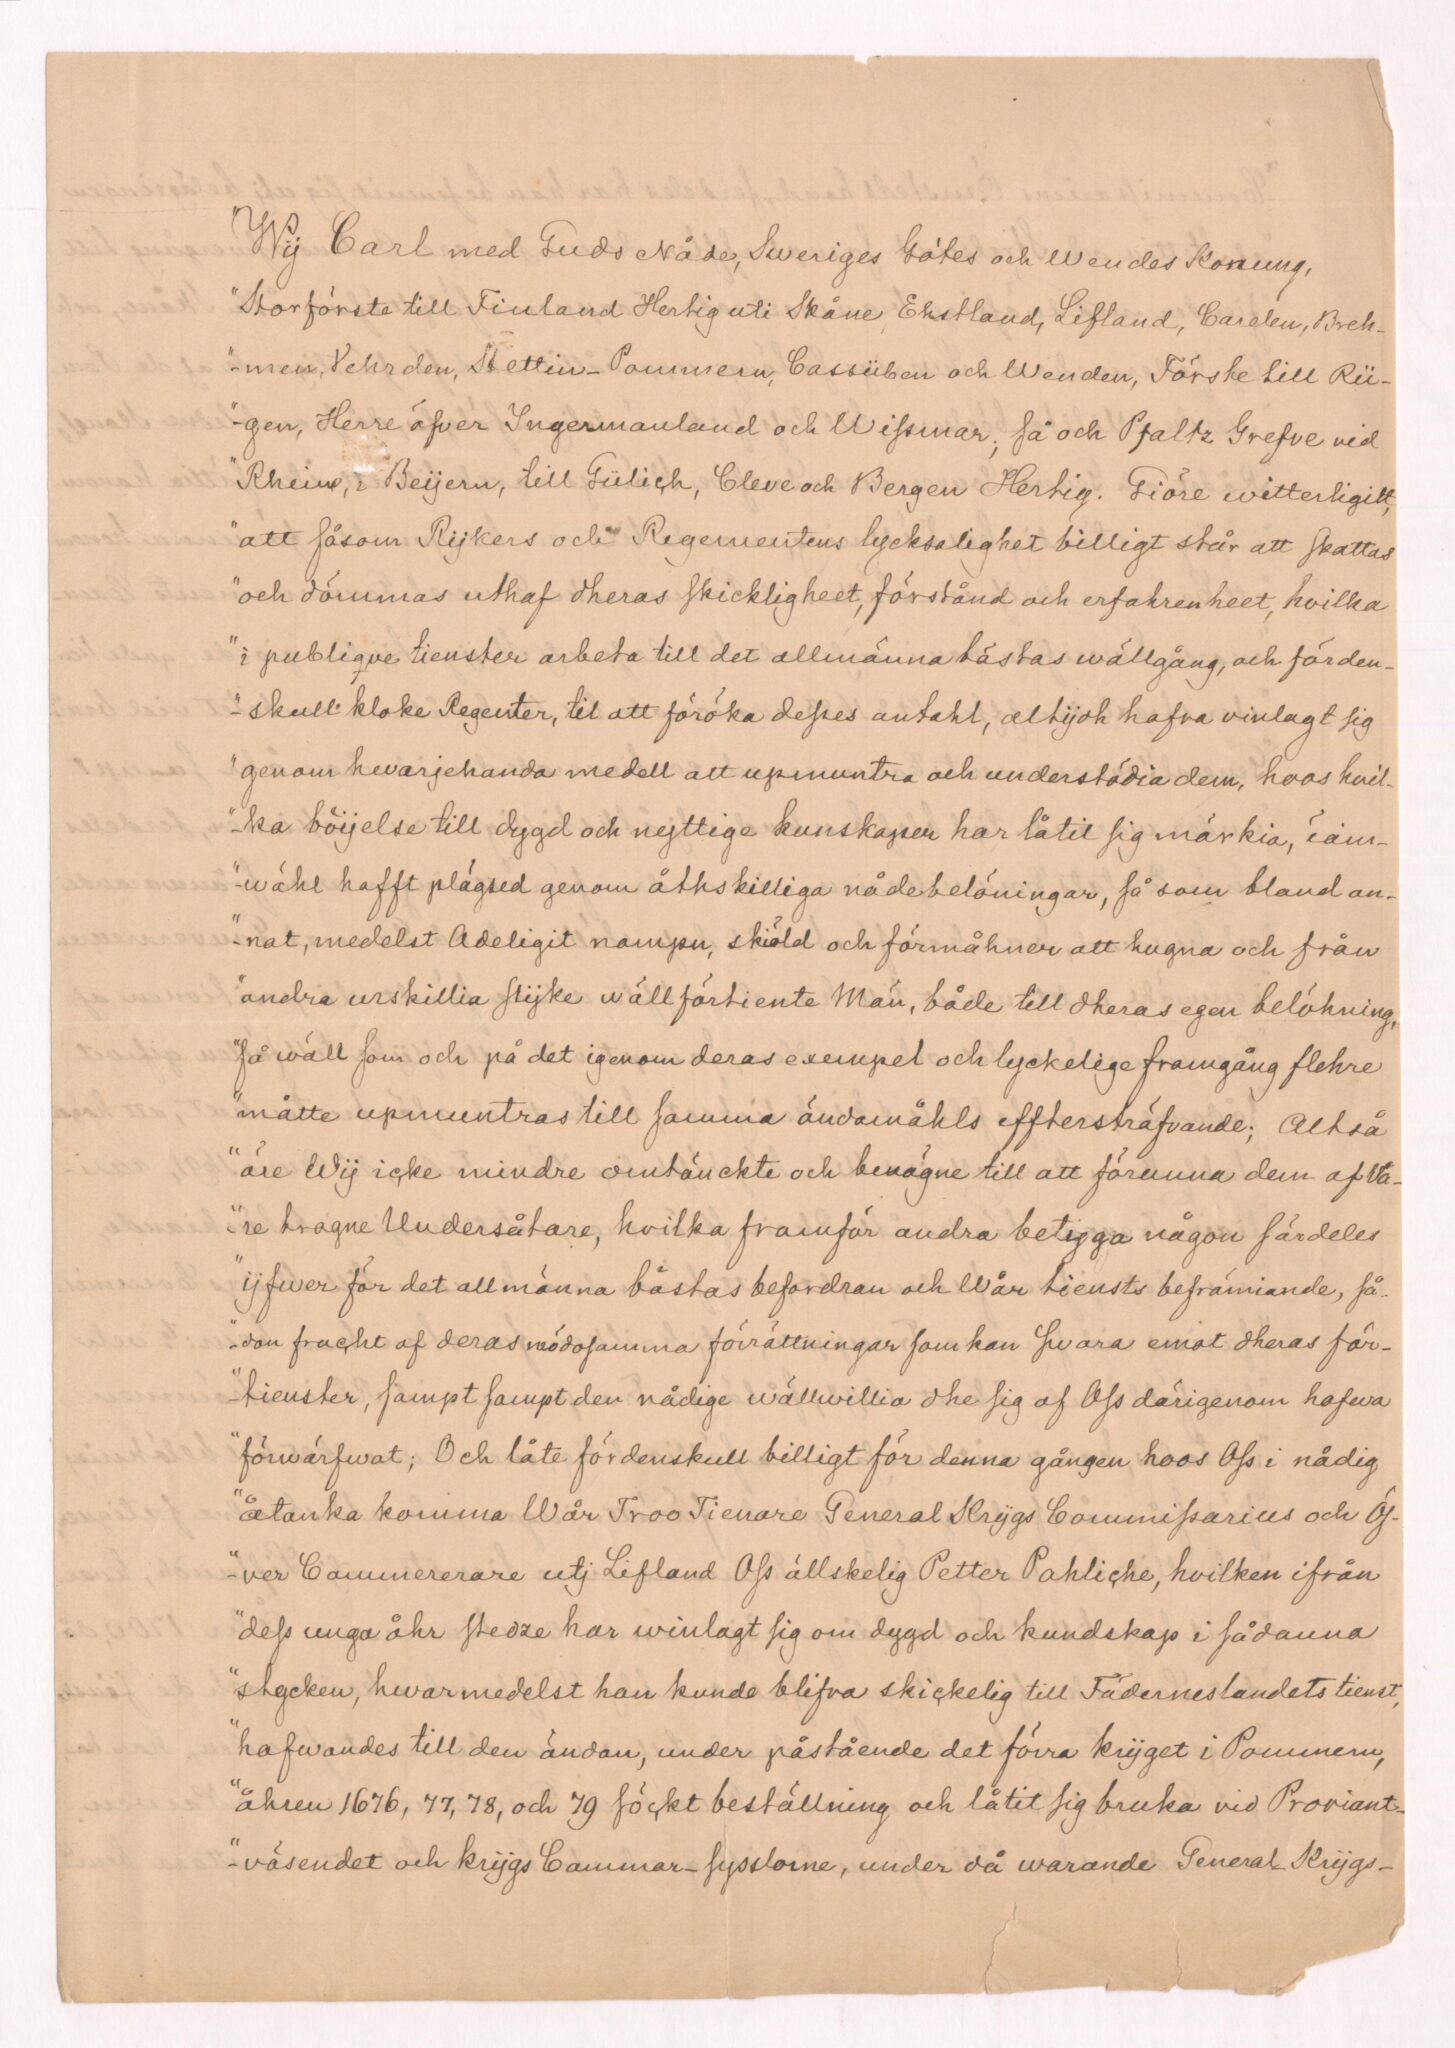 "Wij Carl med Guds Nåde, Sweriges Götes och Wendes Konung,
"Storförste till Finland Hertig uti Skåne, Ehstland, Lifland, Carelen, Breh-
"-men, Vehrden, Stettin-Pommern, Cassüben och Wenden, Förste till Rü-
"-gen, Herre öfver Ingermanland och Wissmar; så och Pfaltz Grefve vid
"Rhein, i Beijern, till Gülich, Cleve och Bergen Hertig. Giöre witterligitt,
"att såsom Rijkers och Regementens lycksalighet billigt står att skattas
"och dömmas uthaf dheras skickligheet, förstånd och erfahrenheet, hvilka
"i publiqve tienster arbeta till det allmänna bästas wällgång, och förden-
"-skull kloke Regenter, til att föröka desses antahl, altijdh hafva vinlagt sig
"genom hevarjehanda medell att upmuntra och understödia dem, hoos hvil-
"-ka böijelse till dygd och nyttige kunskaper har låtit sig märkia, iäm-
"-wähl hafft plägsed genom åthskilliga nådebelöningar, så som bland an-
"-nat, medelst Adeligit nampn, skiöld och förmåhner att hugna och från
"andra urskillia slijke wällförtiente Män, både till dheras egen belöhning,
"så wäll som och på det igenom deras exempel och lyckelige framgång flehre
"måtte upmuntras till samma ändamåhls efftersträfvande; Altså
"äre Wij icke mindre omtänckte och benägne till att förunna dem af Vå-
"-re trogne Undersåtare, hvilka framför andra betyga någon särdeles
"ijfwer för det allmänna bästas befordran och Wår tiensts befrämiande, så-
"-dan frucht af deras mödosamma förrättningar som kan swara emot dheras för-
"-tienster, sampt sampt den nådige wällwillia dhe sig af Oss därigenom hafwa
"förwärfwat; Och låte fördenskull billigt för denna gången hoos Oss i nådig
"åtanka komma Wår Troo Tienare General Krijgs Commissarius och Öf-
"-ver Cammererare utj Lifland Oss älskelig Petter Pahliche, hvilken ifrån
"dess unga åhr stedze har winlagt sig om dygd och kundskap i sådanna
"stycken, hwarmedelst han kunde blifva skickelig till Fäderneslandets tienst,
"hafwandes till den ändan, under påstående det förra krijget i Pommern,
"åhren 1676, 77, 78, och 79 söckt beställning och låtit sig bruka vid Proviant-
"-väsendet och krijgs Cammar-sysslorne, under då warande General Krijgs-